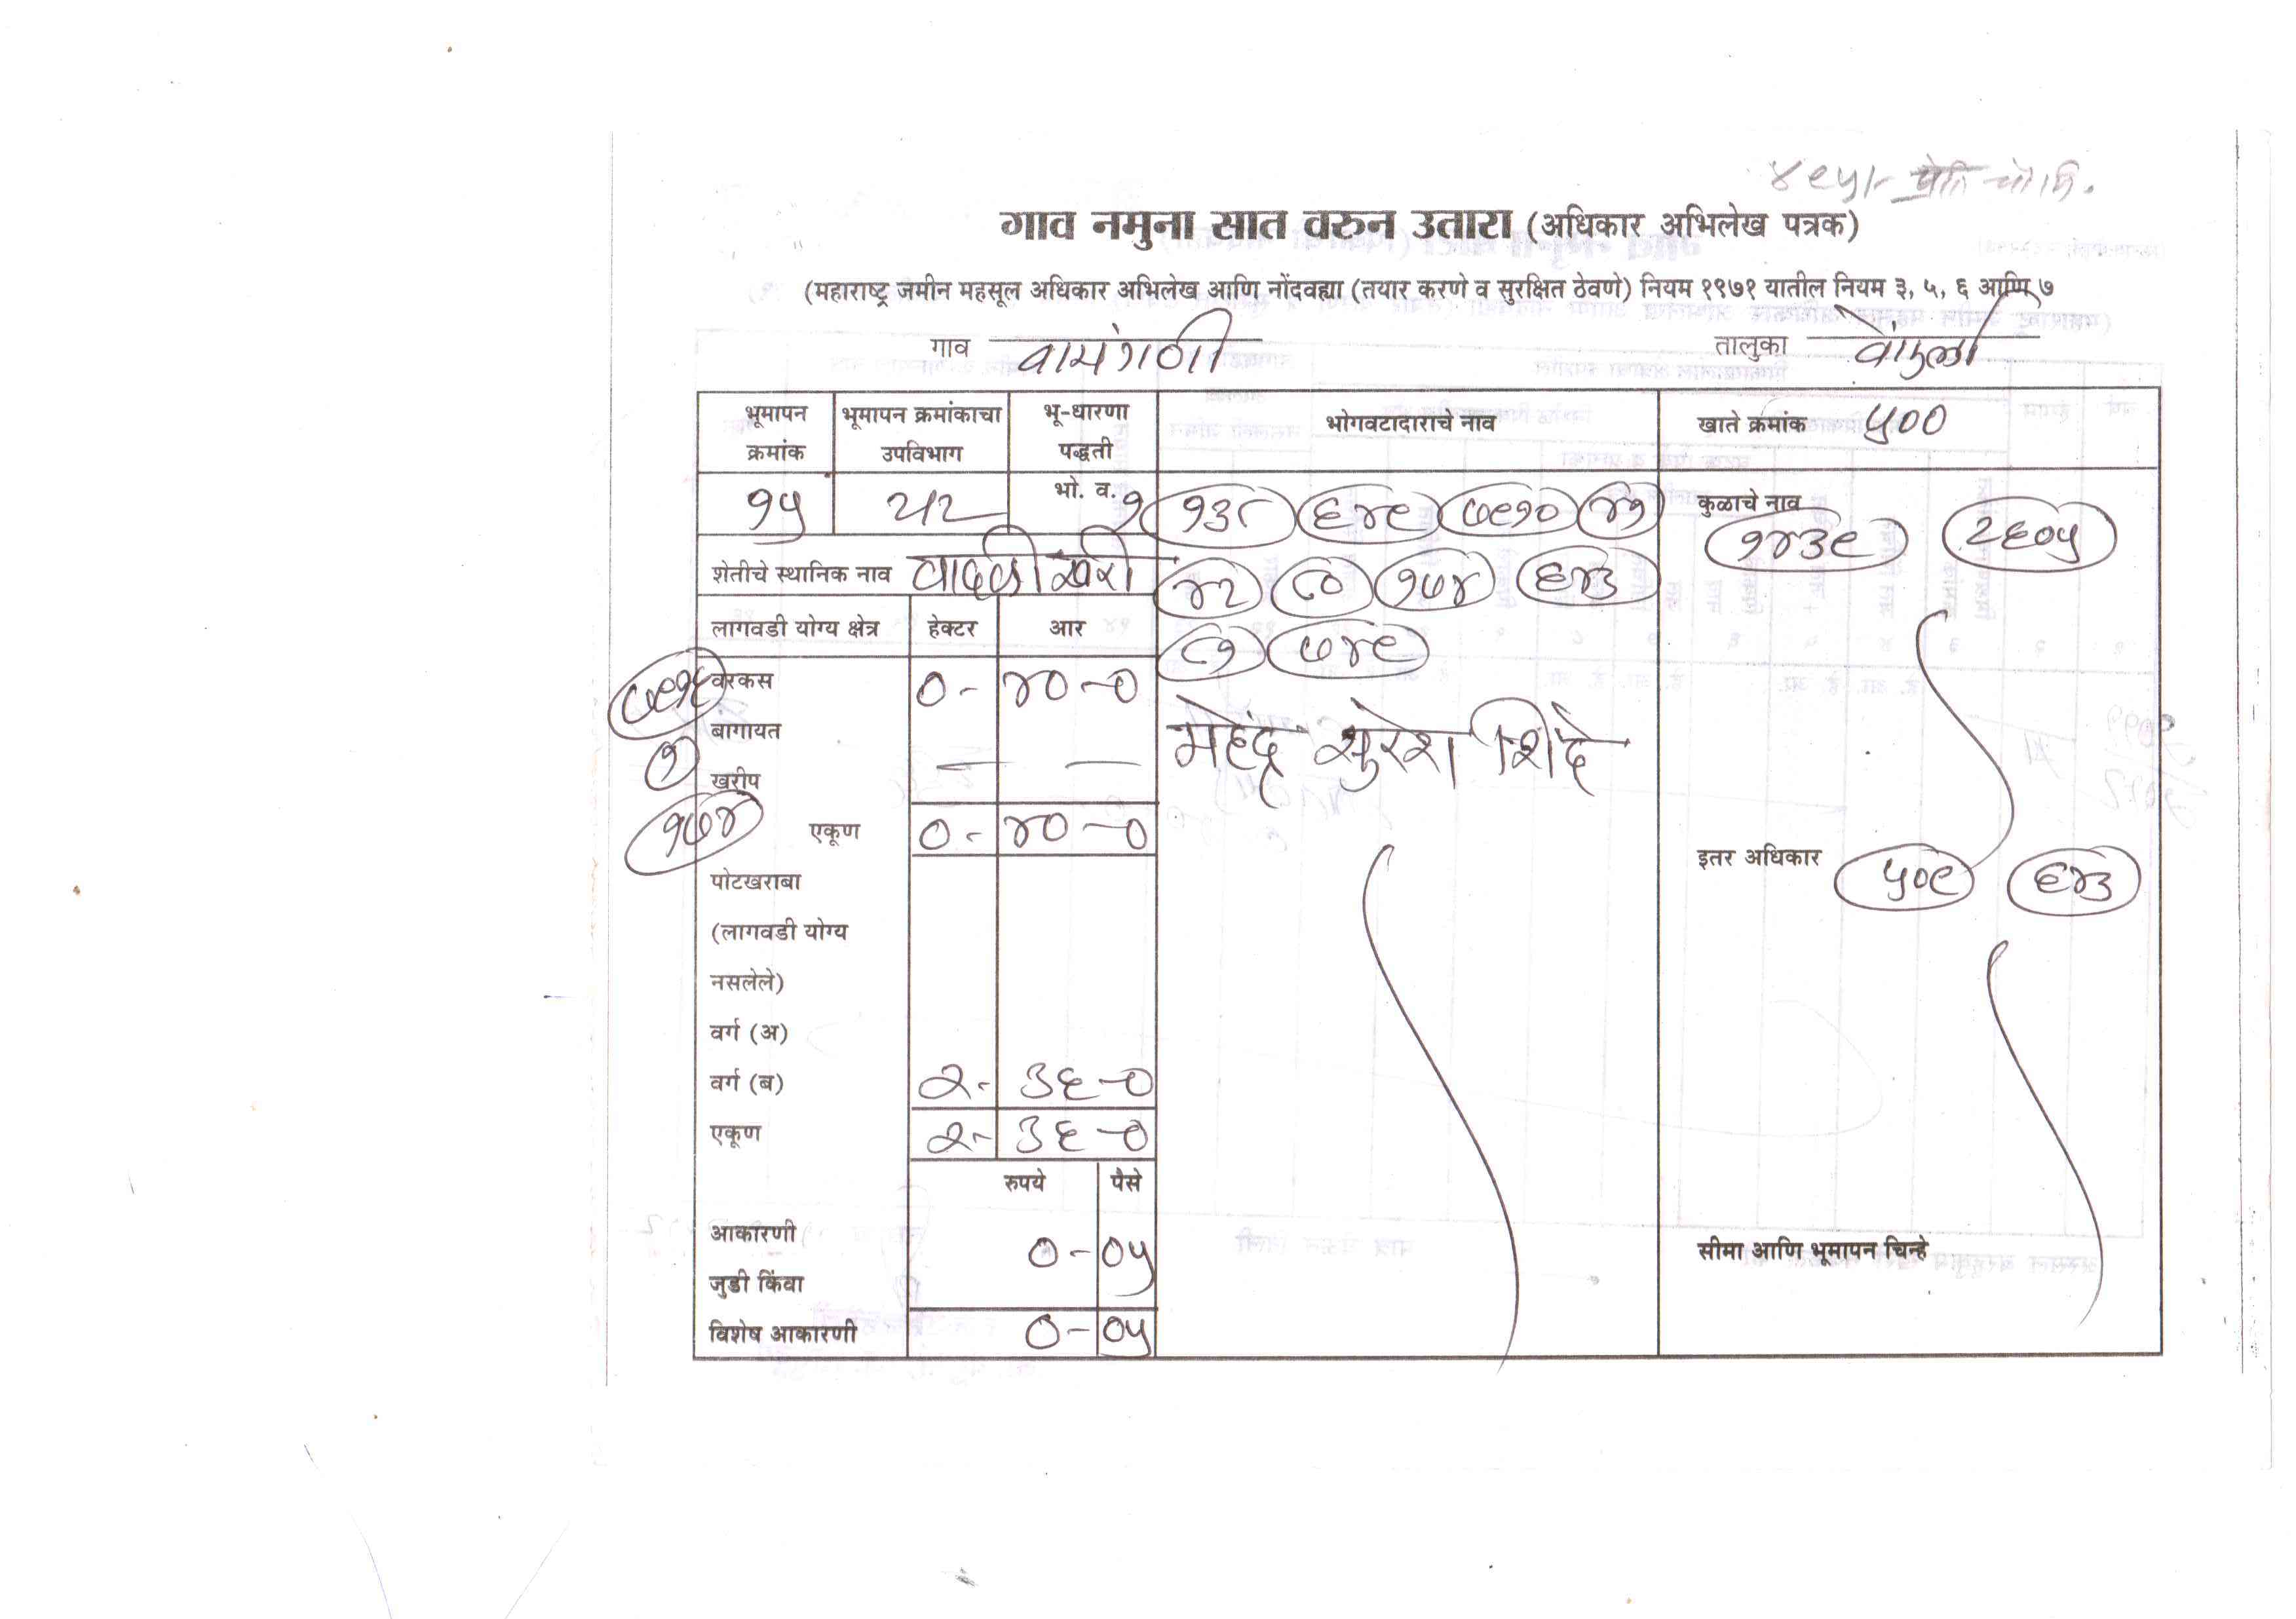 ४९५/- प्रति चौ.मि.
गाव नमुना सात वरुन उतारा (अधिकार अभिलेख पत्रक)
(महाराष्ट्र जमीन महसूल अधिकार अभिलेख आणि नोंदवह्या (तयार करणे व सुरक्षित ठेवणे) नियम १९७१ यातील नियम ३, ५, ६ आणि ७
गाव तालुका
भूमापन क्रमांक भूमापन क्रमांकाचा उपविभाग भू-धारणा पद्धती भोगवटादाराचे नाव खाते क्रमांक ५००
१५ भो. व. १ १३८ ६४९ ७९१० ४१ कुळाचे नाव
१४३९ २६०५
शेतीचे स्थानिक नाव ४२ ८० १७४ ६४३
लागवडी योग्य क्षेत्र हेक्टर आर ८१ ७४९
७९१६ वरकस ० - ४० - ०
बागायत महेंद्र सुरेश शिंदे
१ खरीप — —
१७४ एकूण ० - ४० - ०
इतर अधिकार ५०९ ६४३
पोटखराबा
(लागवडी योग्य
नसलेले)
वर्ग (अ)
वर्ग (ब) २ - ३६ - ०
एकूण २ - ३६ - ०
रुपये पैसे
आकारणी ० - ०५ सीमा आणि भूमापन चिन्हे
जुडी किंवा
विशेष आकारणी ० - ०५